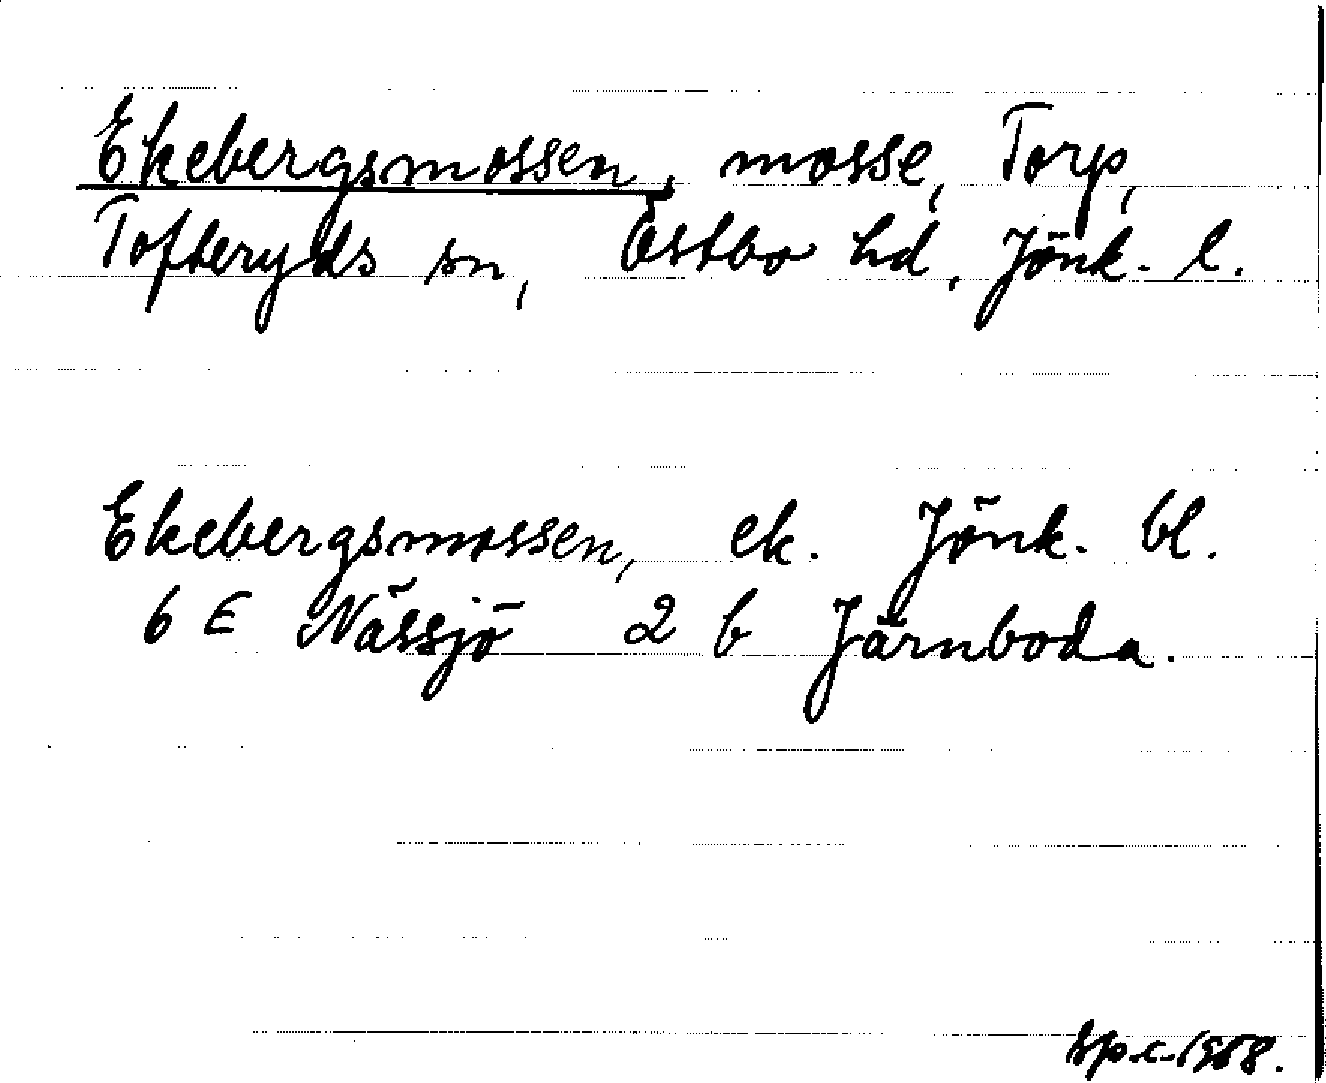 Ekebergsmossen, mosse, Torp,
Tofteryds sn, Östbo hd, Jönk. l.
Ekebergsmossen, ek. Jönk. bl.
6 E Nässjö 2 b Järnboda.
1958.